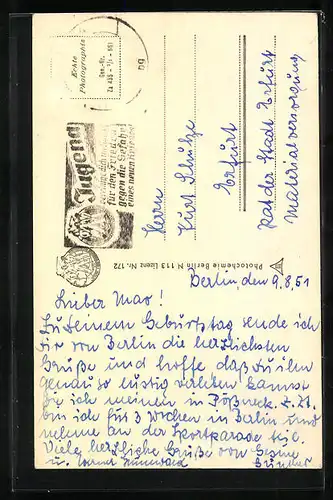 Echte
Photographie
Gen.-Nr.
Jugend
für den Frieden
gegen die Gefahr
eines neuen Krieges
Herrn
Kurt Schulze
Erfurt
Rat der Stadt Erfurt
Materialversorgung
Photochemie Berlin N 113 Lizenz Nr. 172
Berlin, den 9.8.51
Lieber Max!
Zu Deinem Geburtstag sende ich
Dir von Berlin die herzlichsten
Grüße und hoffe daß Du ihn
genauso lustig verleben kannst
wie ich meinen in Pößneck. Z. Zt.
bin ich für 3 Wochen in Berlin und
nehme an der Sportparade teil.
Viele herzliche Grüße von
u. Günther